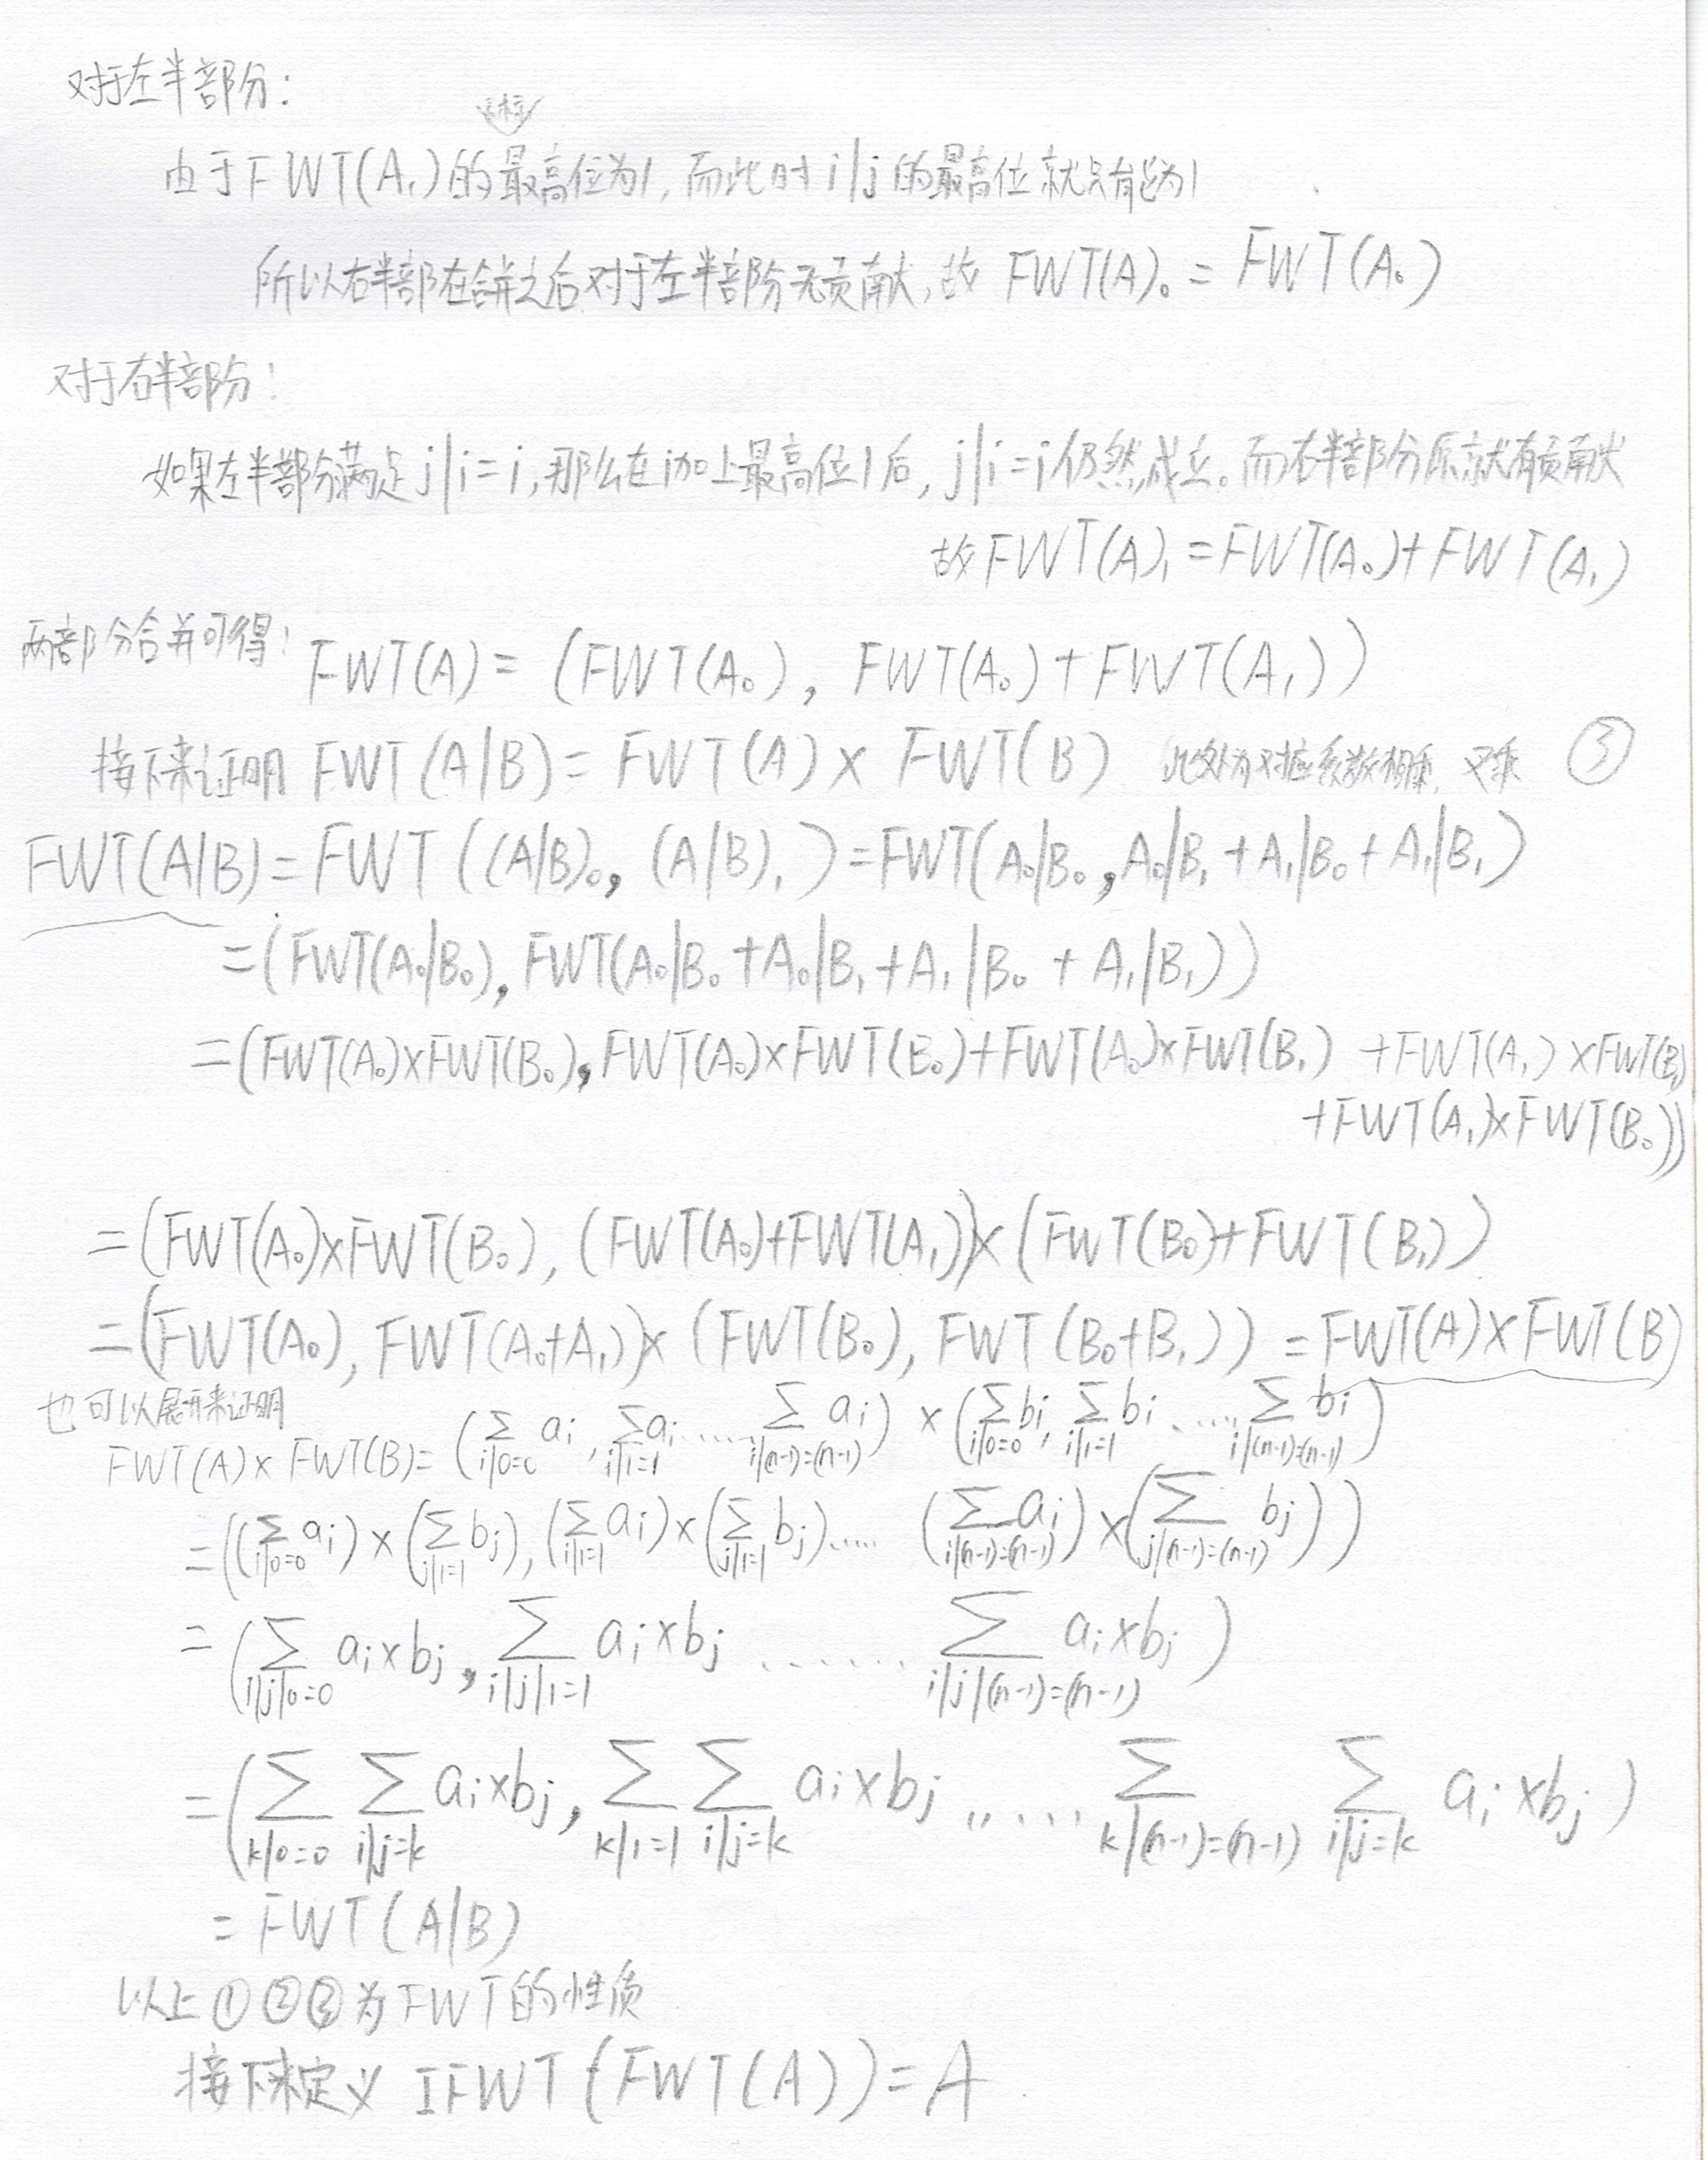 对于左半部分:
由于FWT(A₁)的最高位为1,而此时i|j的最高位就只有能为1
所以右半部在合并之后对于左半部分无贡献,故 FWT(A)₀ = FWT(A₀)
对于右半部分:
如果左半部分满足j|i=i,那么在i加上最高位1后,j|i=i仍然成立。而右半部分原就有贡献
故FWT(A)₁ = FWT(A₀)+FWT(A₁)
两部分合并可得: FWT(A) = (FWT(A₀), FWT(A₀)+FWT(A₁))
接下来证明 FWT(A|B) = FWT(A) × FWT(B) 此处为对应系数相乘, ③
FWT(A|B) = FWT((A|B)₀, (A|B)₁) = FWT(A₀|B₀, A₀|B₁+A₁|B₀+A₁|B₁)
=(FWT(A₀|B₀), FWT(A₀|B₀+A₀|B₁+A₁|B₀+A₁|B₁))
=(FWT(A₀)×FWT(B₀), FWT(A₀)×FWT(B₀)+FWT(A₀)×FWT(B₁) +FWT(A₁)×FWT(B₁)
+FWT(A₁)×FWT(B₀))
=(FWT(A₀)×FWT(B₀), (FWT(A₀)+FWT(A₁))×(FWT(B₀)+FWT(B₁))
=(FWT(A₀), FWT(A₀+A₁))×(FWT(B₀), FWT(B₀+B₁)) = FWT(A)×FWT(B)
也可以展开来证明
FWT(A)×FWT(B)= (∑_{i|0=0} a_i, ∑_{i|1=1} a_i ...... ∑_{i|(n-1)=(n-1)} a_i) × (∑_{i|0=0} b_i, ∑_{i|1=1} b_i ..... ∑_{i|(n-1)=(n-1)} b_i)
=((∑_{i|0=0} a_i)×(∑_{j|1=1} b_j), (∑_{i|1=1} a_i)×(∑_{j|1=1} b_j)..... (∑_{i|(n-1)=(n-1)} a_i)×(∑_{j|(n-1)=(n-1)} b_j))
=(∑_{i|j|0=0} a_i×b_j, ∑_{i|j|1=1} a_i×b_j ....... ∑_{i|j|(n-1)=(n-1)} a_i×b_j)
=(∑_{k|0=0} ∑_{i|j=k} a_i×b_j, ∑_{k|1=1} ∑_{i|j=k} a_i×b_j ...... ∑_{k|(n-1)=(n-1)} ∑_{i|j=k} a_i×b_j)
= FWT(A|B)
以上①②③为FWT的性质
接下来定义 IFWT(FWT(A))=A